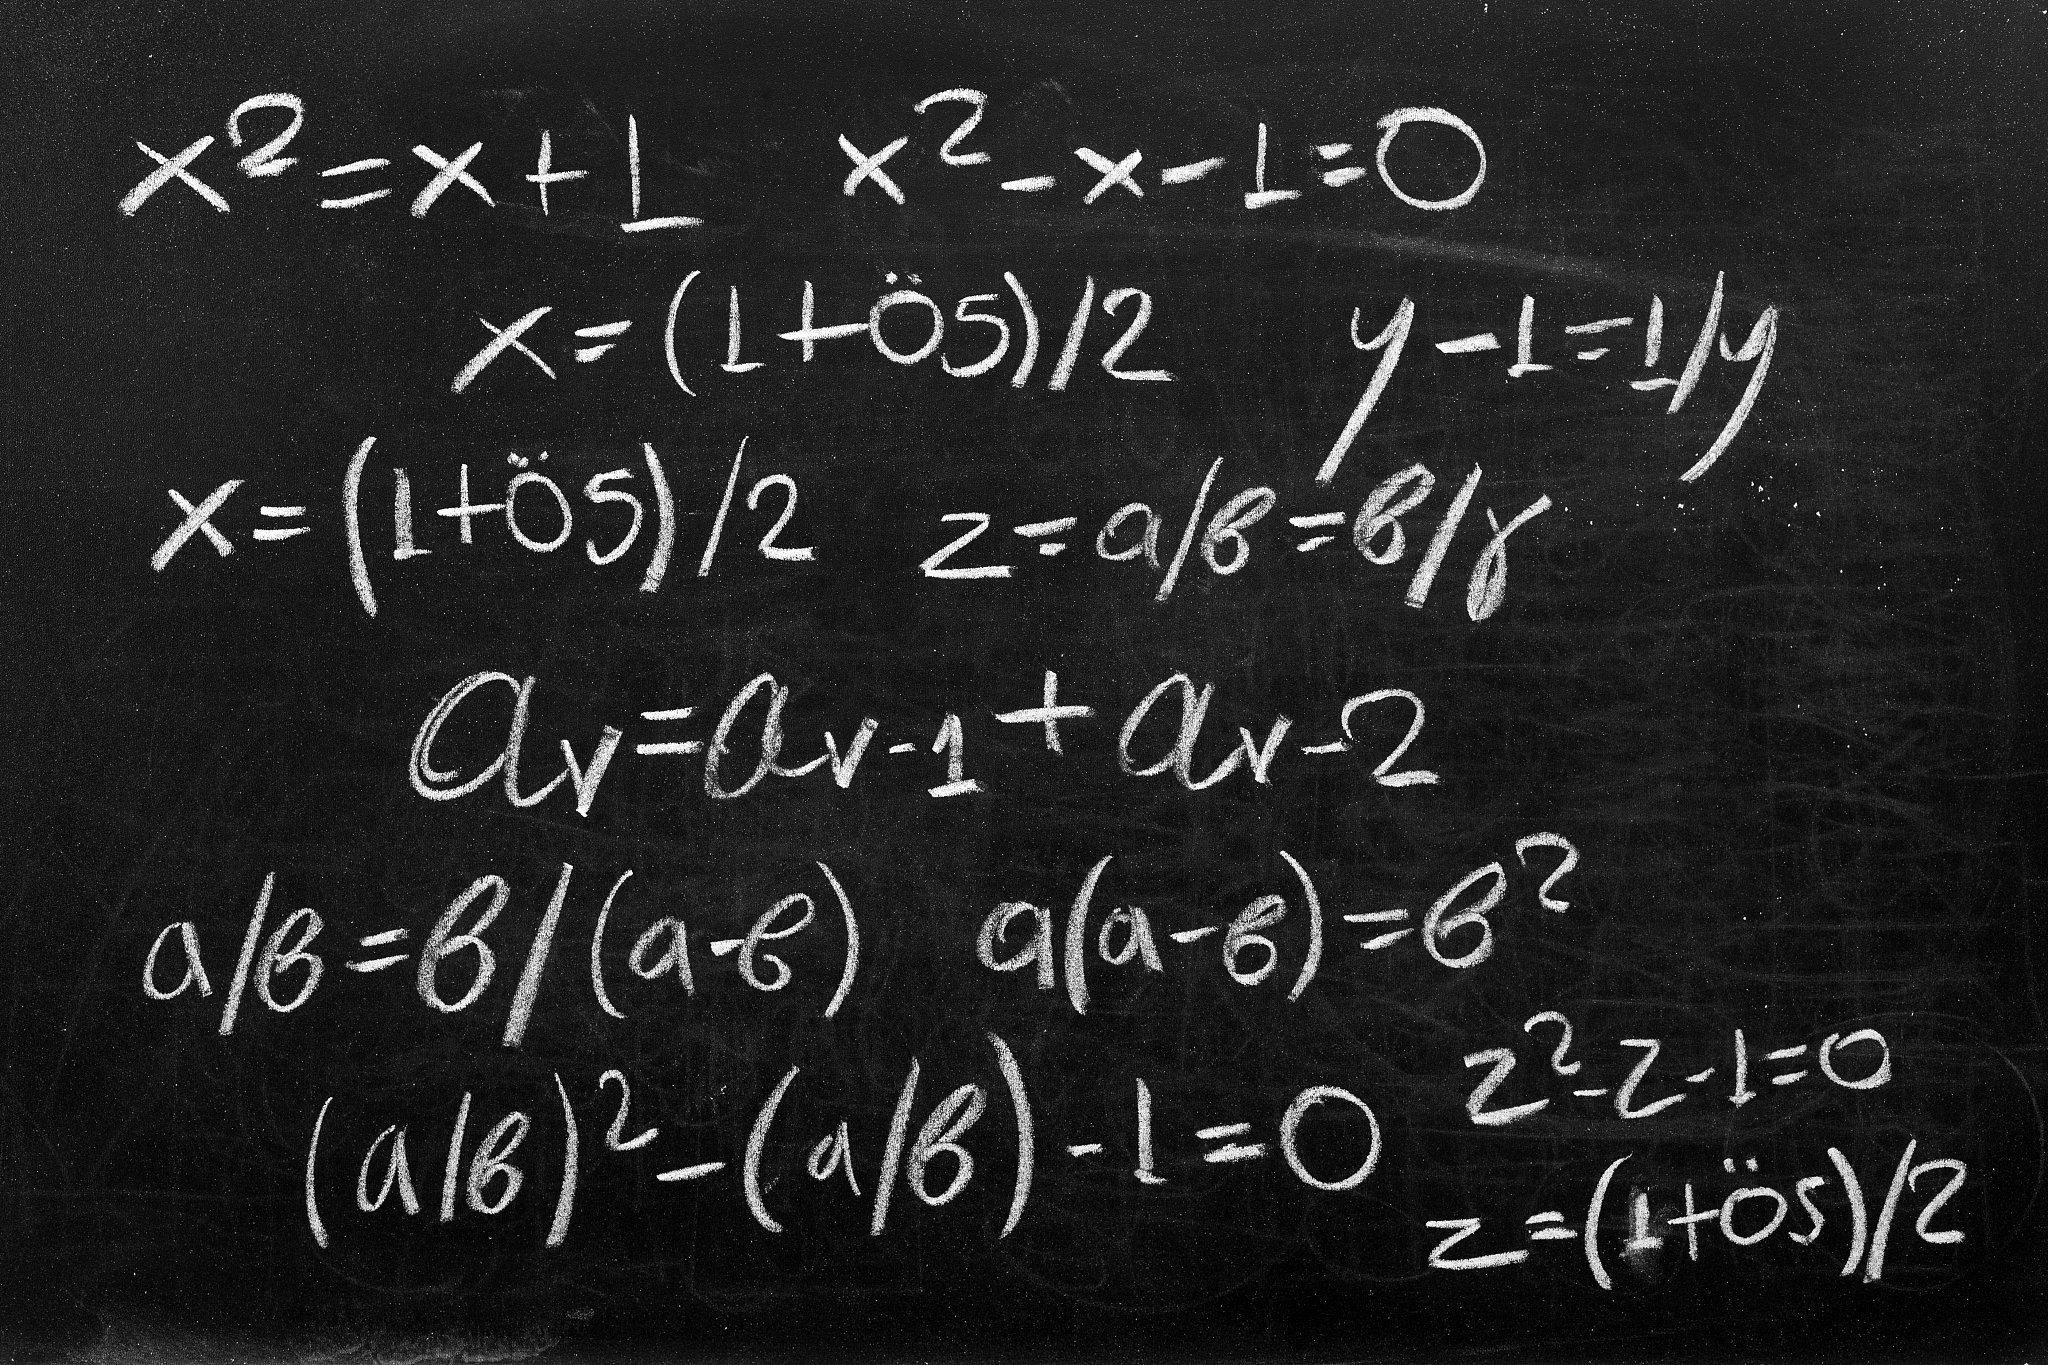 x²=x+1 x²-x-1=0
x=(1+ö5)/2 y-1=1/y
x=(1+ö5)/2 z=a/в=в/γ
aν=aν-1+aν-2
a/в=в/(a-в) a(a-в)=в²
(a/в)²-(a/в)-1=0 z²-z-1=0
z=(1+ö5)/2